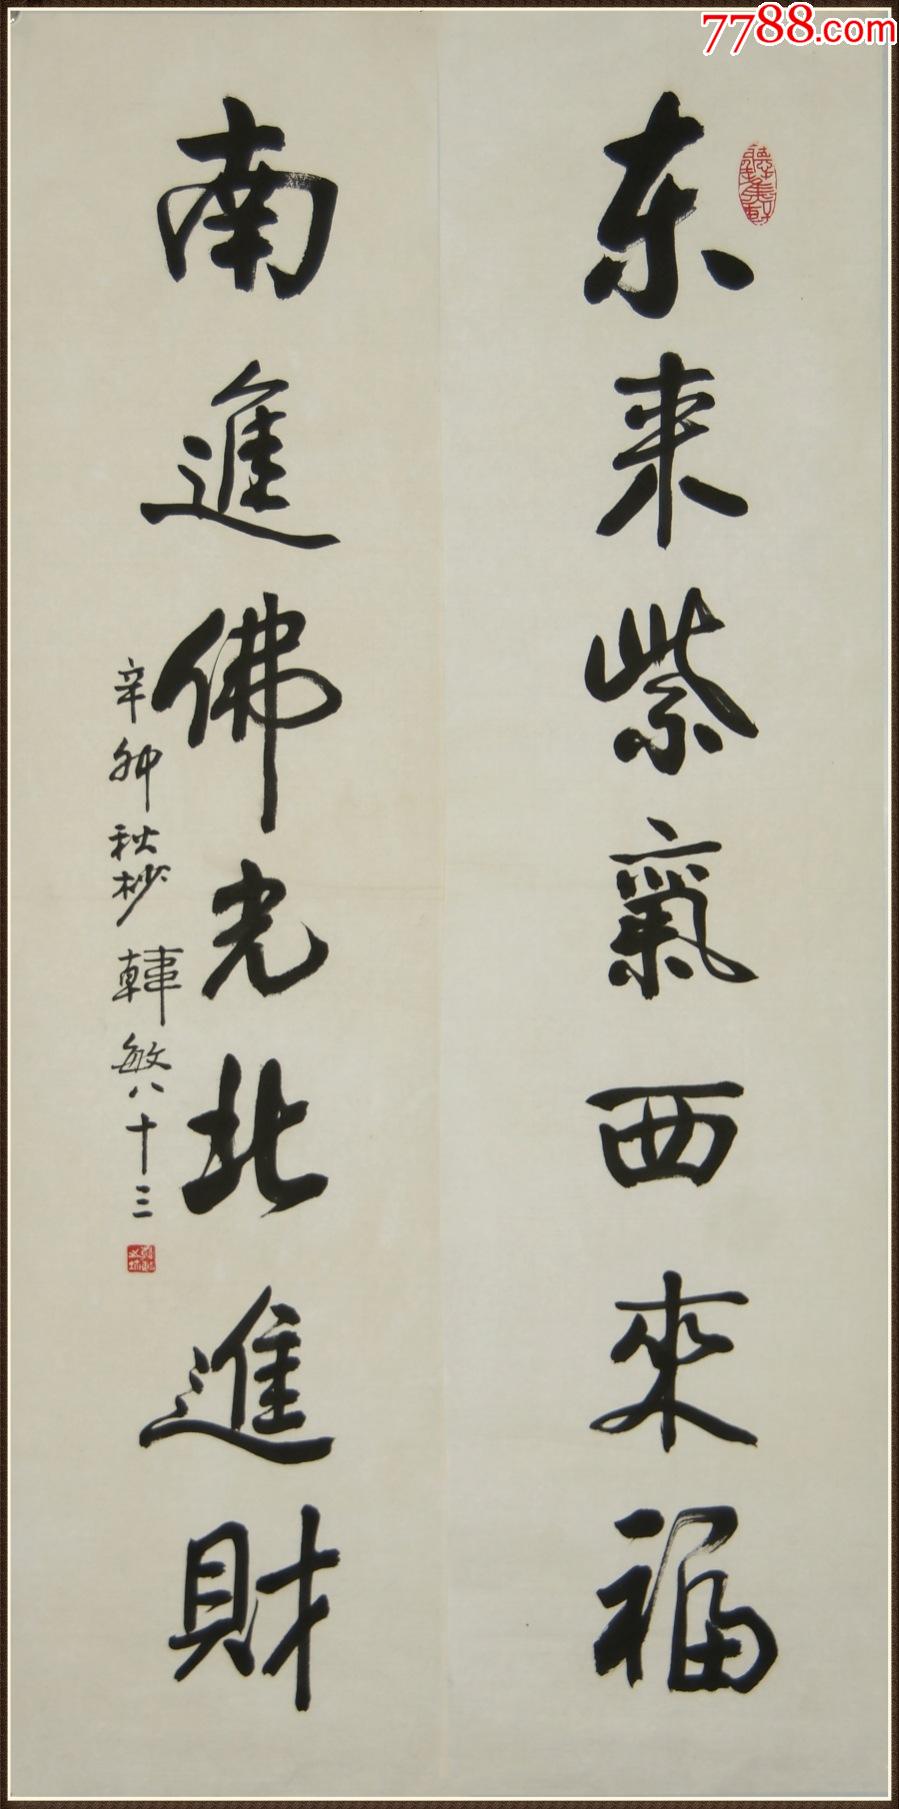 7788.com
东来紫氣西來福
南進佛光北進財
辛卯秋杪韓敏八十三